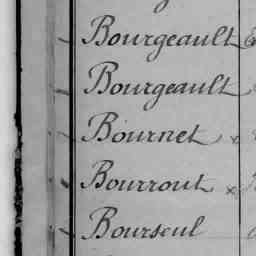 Bourgeault
Bourgeault
Bournet x
Bourrout x
Bourseul